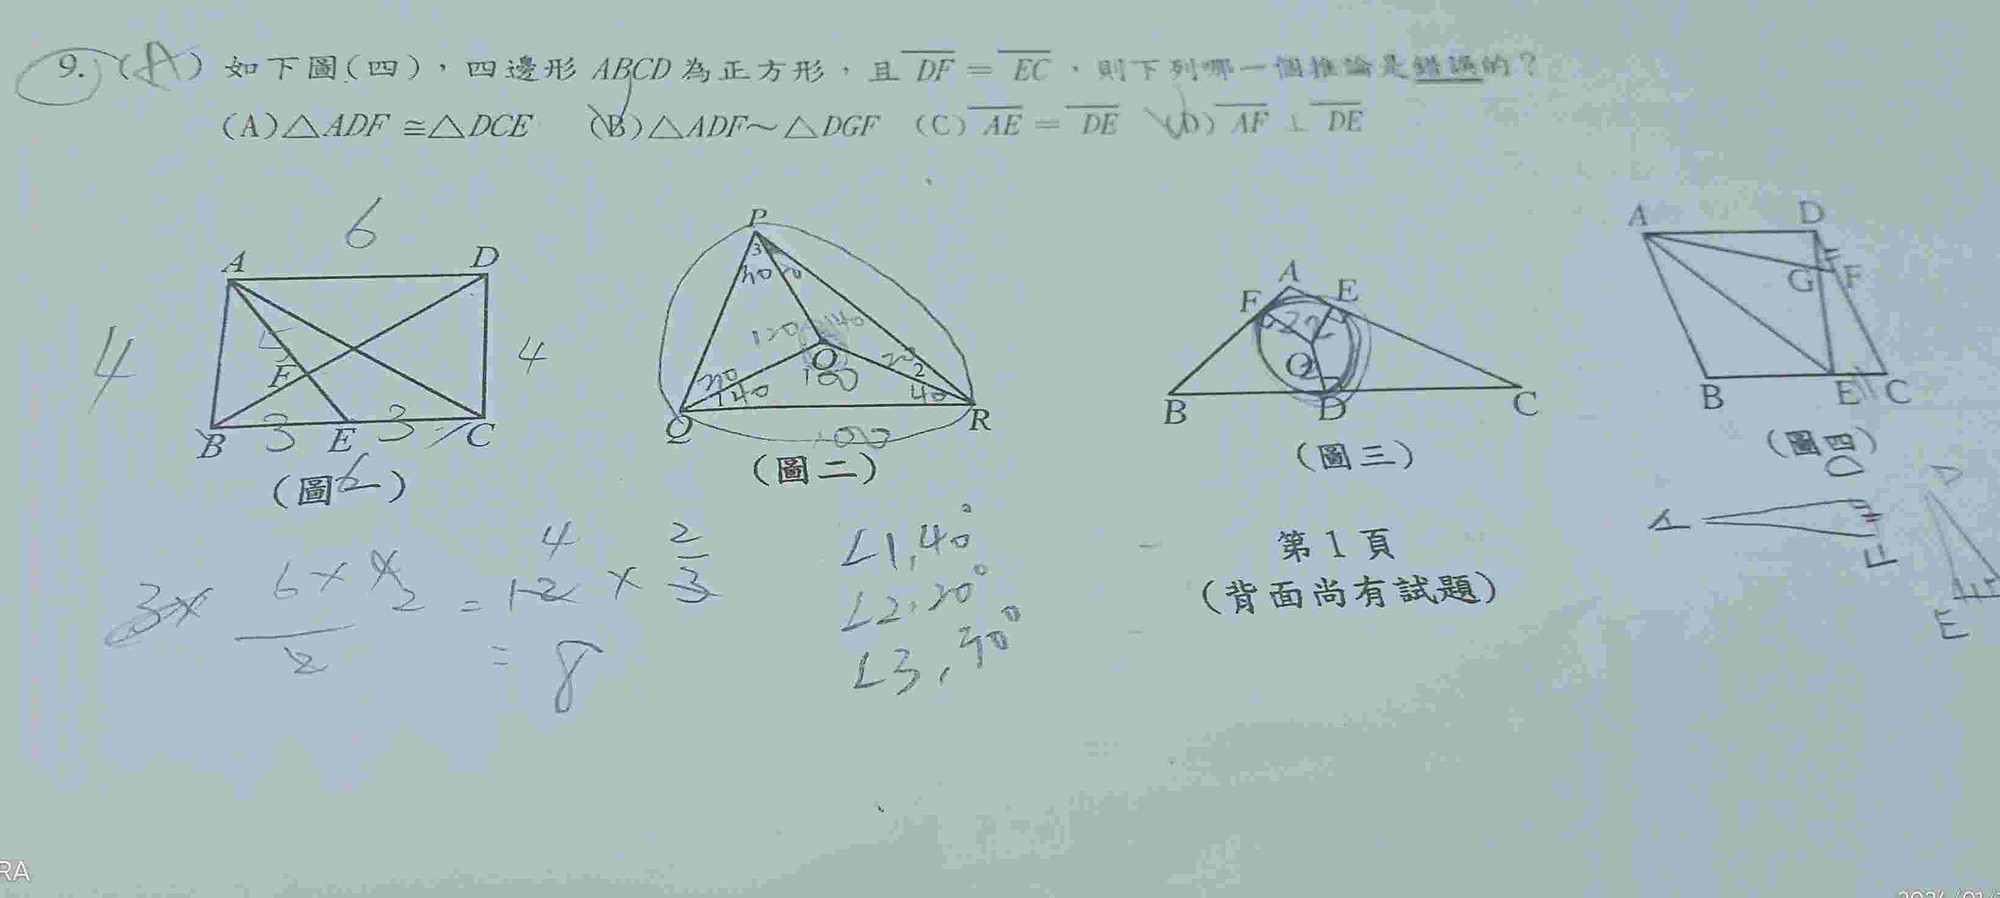 9. (A) 如下圖(四)，四邊形 ABCD 為正方形，且 DF = EC，則下列哪一個推論是錯誤的？
(A)△ADF ≅△DCE (B)△ADF～△DGF (C) AE = DE (D) AF ⊥ DE
6
A D
4 5 F 4
B 3 E 3 C
(圖一)
6
P
3
30 20
120 140
O
100
20 20 2
Q 1 40 40 R
100
(圖二)
A
F E
32
O
B D C
(圖三)
A D
G F
B E C
(圖四)
D
A
F
D
E
3× 6×4/2 /2 = 12 × 2/3
4
= 8
∠1, 40°
∠2, 20°
∠3, 30°
第1頁
(背面尚有試題)
RA